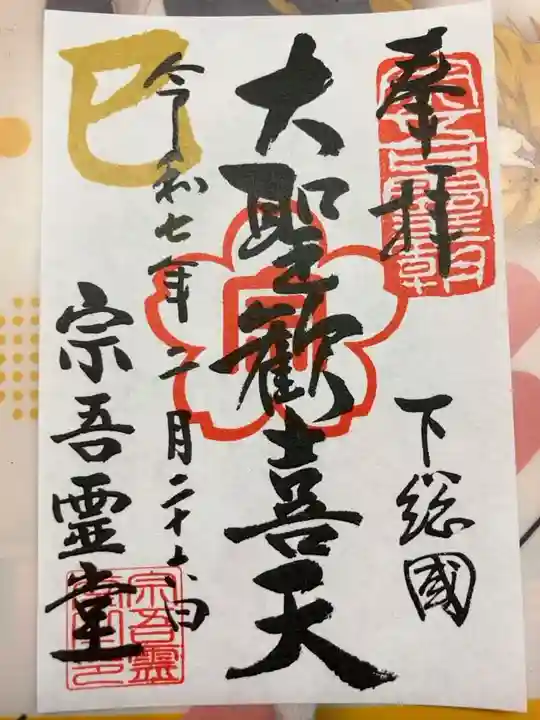 奉拝
下総國
大聖歓喜天
令和七年二月二十六日
宗吾霊堂
巳